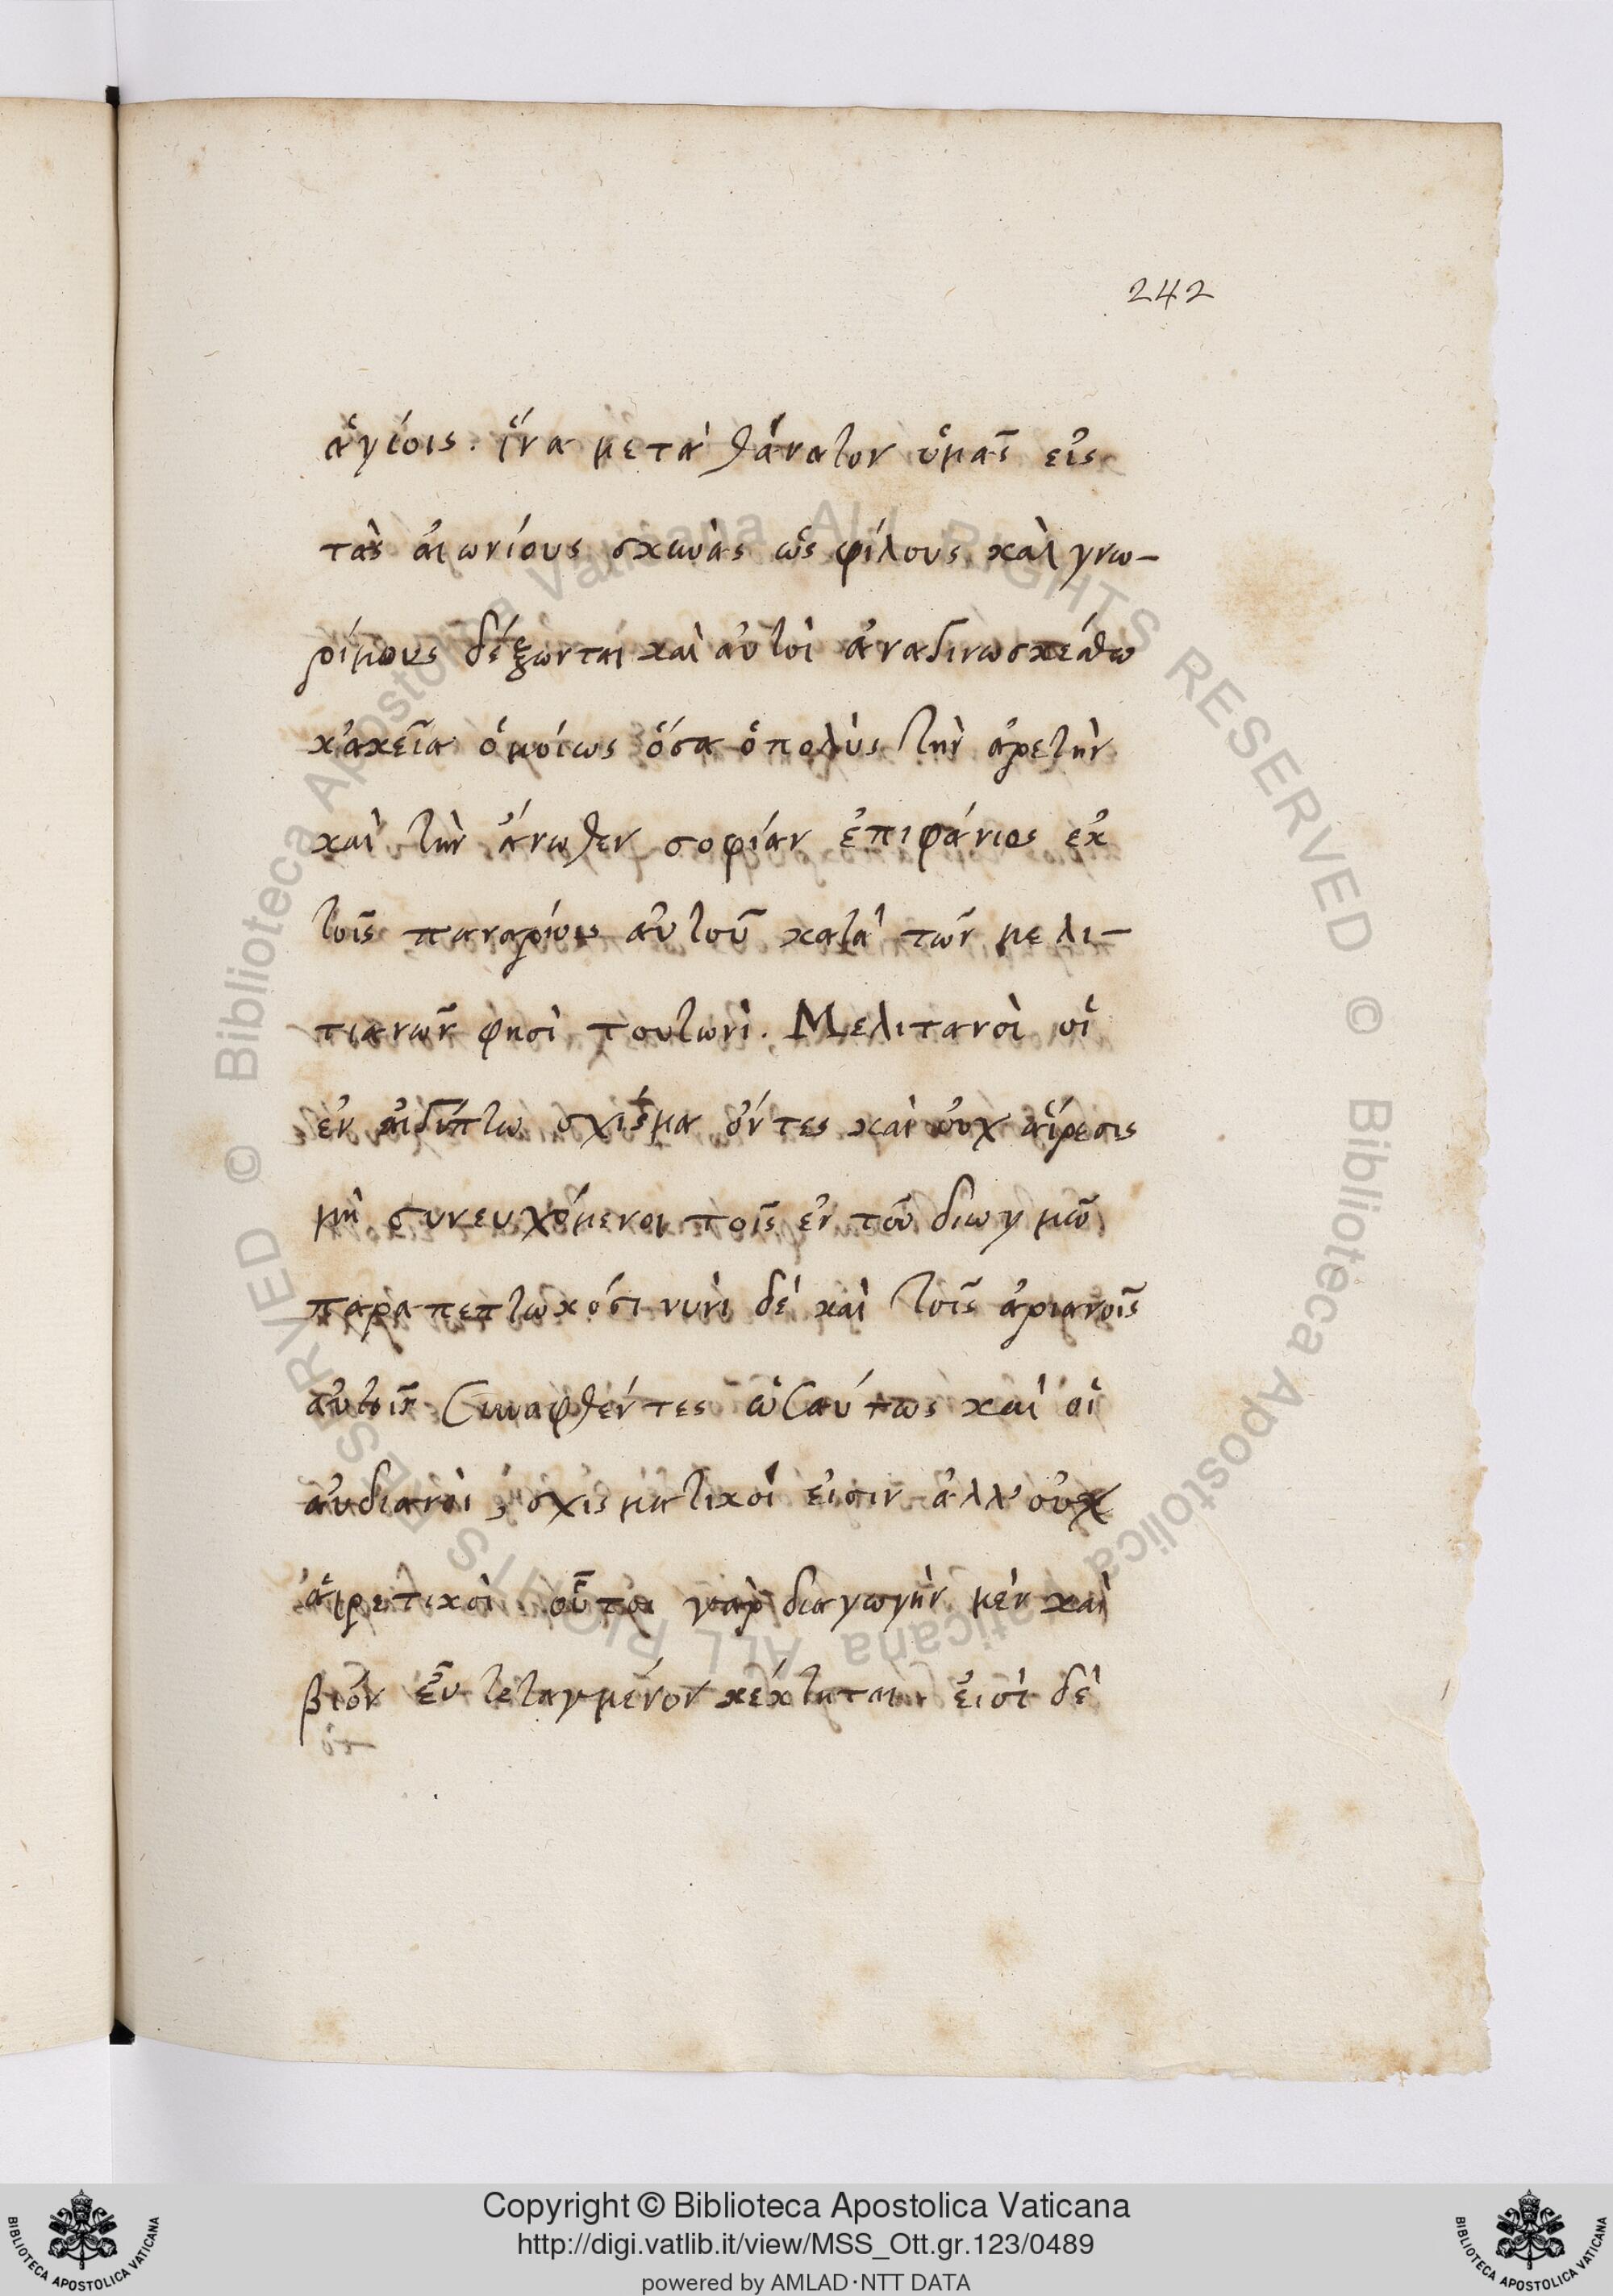 242
ἁγίοις. ἵνα μετὰ θάνατον ὑμᾶς εἰς
τὰς αἰωνίους σκηνὰς ὡς φίλους καὶ γνω-
ρίμους δέξωνται καὶ αὐτοὶ ἀναγινωσκέσθω
κἀκεῖνα ὁμοίως ὅσα ὁ πολὺς τὴν ἀρετὴν
καὶ τὴν ἄνωθεν σοφίαν ἐπιφάνιος ἐκ
τοῖς παναρίοις αὐτοῦ κατὰ τῶν μελι-
τιανῶν φησὶ τουτωνὶ. Μελιτανοὶ οἱ
ἐν αἰγύπτω σχίσμα ὄντες καὶ οὐχ αἵρεσις
μὴ συνευχόμενοι τοῖς ἐν τοῦ διωγμῶ
παραπεπτωκόσι νυνὶ δὲ καὶ τοῖς ἀριανοῖς
αὐτοῖς συναφθέντες ὡσαύτως καὶ οἱ
αὐδιανοὶ σχισματικοί εἰσιν ἀλλ' οὐχ
αἱρετικοὶ οὗτοι γὰρ διαγωγὴν μὲν καὶ
βιὸν εὖ τεταγμένον κέκτηται εἰσὶ δὲ
Copyright © Biblioteca Apostolica Vaticana
http://digi.vatlib.it/view/MSS_Ott.gr.123/0489
powered by AMLAD·NTT DATA